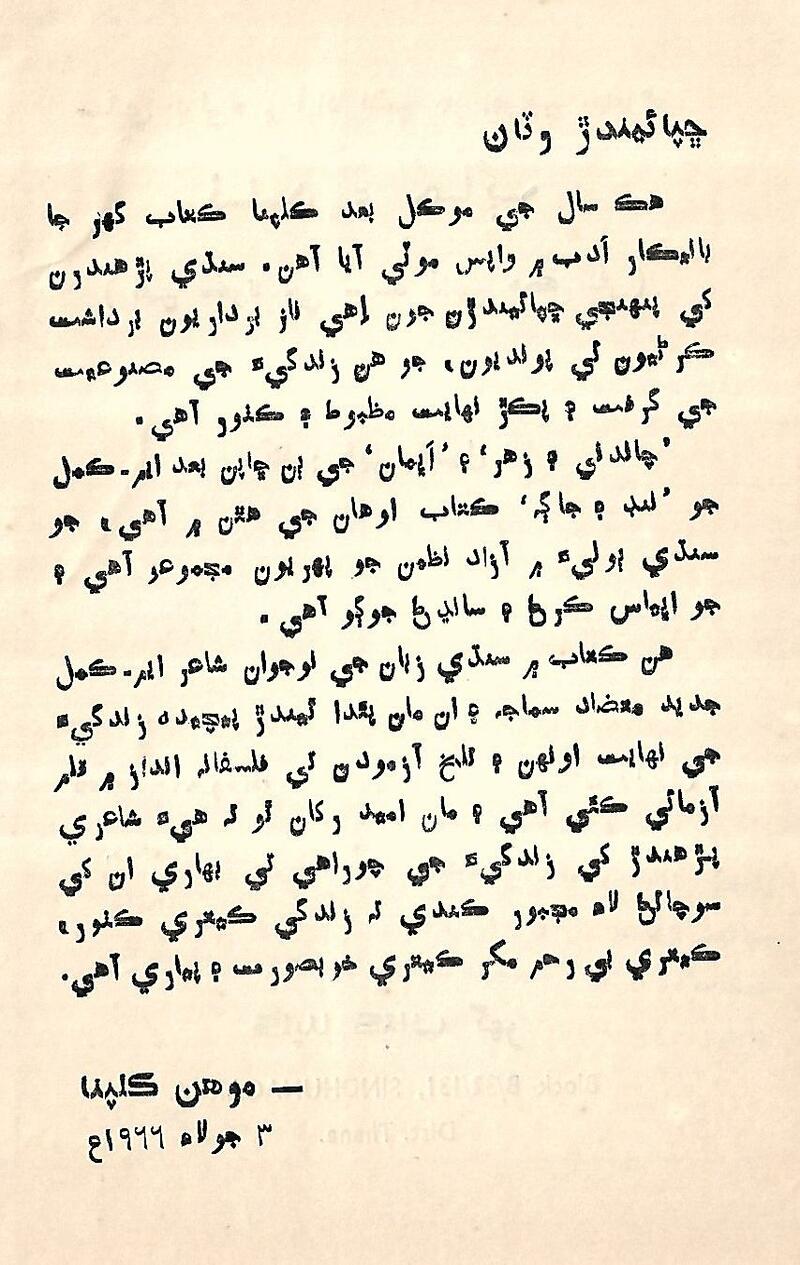 ڇپائيندڙ وٽان
هڪ سال جي موڪل بعد ڪلپنا ڪتاب گهر جا
باليڪار اَدب ۾ واپس موٽي آيا آهن. سنڌي پڙهندرن
کي پنهنجي ڇپائيندڙن جون اِهي ناز برداريون برداشت
ڪرڻيون ئي پونديون، جو هن زندگيءَ جي مصنوعيت
جي گرفت ۽ پڪڙ نهايت مظبوط ۽ ڪٺور آهي.
’چاندني ۽ زهر‘ ۽ ’اَيمان‘ جي ٻن ڇاپن بعد ايم۔ ڪمل
جو ’ننڊ ۽ جاڳه‘ ڪتاب اوهان جي هٿن ۾ آهي، جو
سنڌي ٻوليءَ ۾ آزاد نظمن جو پهريون مجموعو آهي ۽
جو اڀياس ڪرڻ ۽ سانڍڻ جوڳو آهي.
هن ڪتاب ۾ سنڌي زبان جي نوجوان شاعر ايم۔ ڪمل
جديد متضاد سماجه ۽ ان مان پئدا ٿيندڙ پيچيده زندگيءَ
جي نهايت اونهن ۽ تلخ آزمودن تي فلسفانه انداز ۾ قلم
آزمائي ڪئي آهي ۽ مان اميد رکان ٿو ته هيءَ شاعري
پڙهندڙ کي زندگيءَ جي چوراهي تي بهاري ان کي
سوچائڻ لاءِ مجبور ڪندي ته زندگي ڪيتري ڪٺور،
ڪيتري بي رحم مگر ڪيتري خوبصورت ۽ پياري آهي.
— موهن ڪلپنا
٣ جولاءِ ١٩٦٦ع